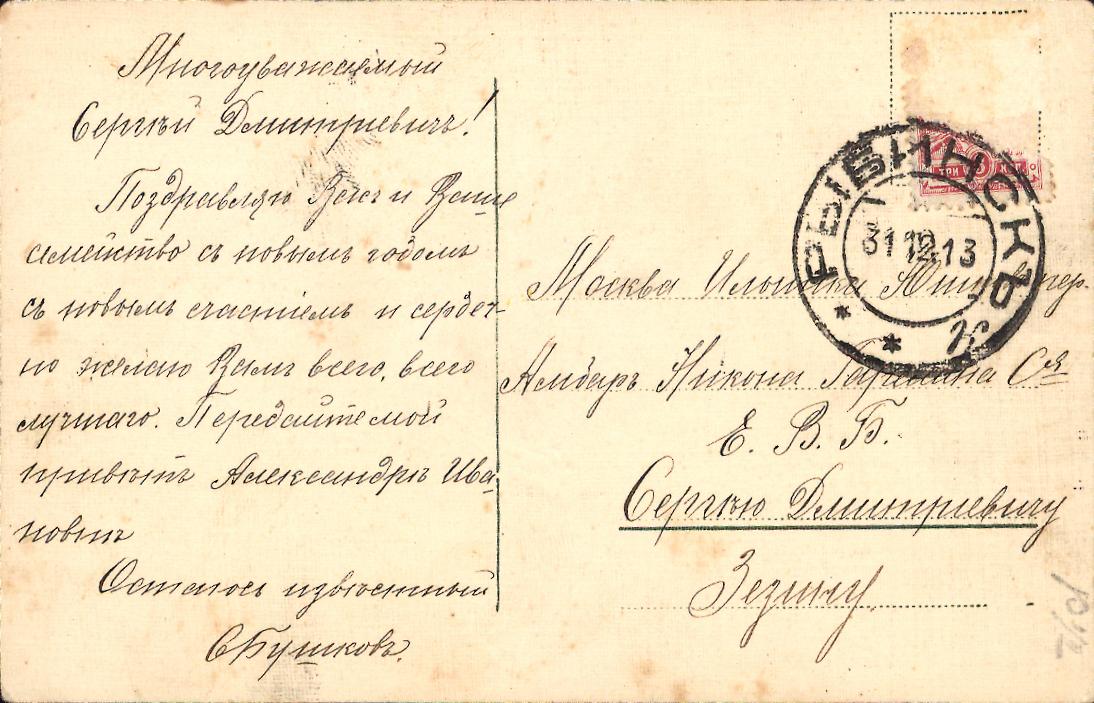 Многоуважаемый
Сергѣй Дмитріевичъ!
Поздравляю Васъ и Ваше
семейство съ новымъ годомъ
съ новымъ счастіемъ и сердеч-
но желаю Вамъ всего, всего
лучшаго. Передайте мой
привѣтъ Александрѣ Ива
новнѣ
Остаюсь извѣстный
СБушковъ.
РЫБИНСКЪ
31 12.13
ТРИ 3 КОП.
Москва Ильинка Юшк пер.
Амбаръ Никона Гарелина Ся
Е. В. Б.
Сергѣю Дмитріевичу
Зезину